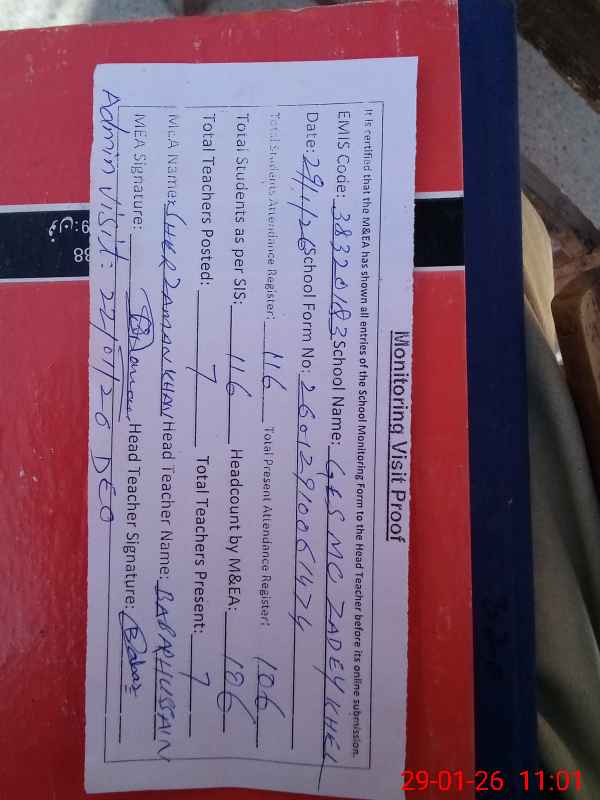 Monitoring Visit Proof
It is certified that the M&EA has shown all entries of the School Monitoring Form to the Head Teacher before its online submission.
EMIS Code: 38320183 School Name: GES MC ZADEY KHEL
Date: 29/1/26 School Form No: 26012910061474
Total Students Attendance Register: 116 Total Present Attendance Register: 106
Total Students as per SIS: 116 Headcount by M&EA: 106
Total Teachers Posted: 7 Total Teachers Present: 7
M&A Name: SHER ZAMAN KHAN Head Teacher Name: BABAR HUSSAIN
MEA Signature: Head Teacher Signature: Babar
Admin Visit: 22/01/20 DEO
29-01-26 11:01